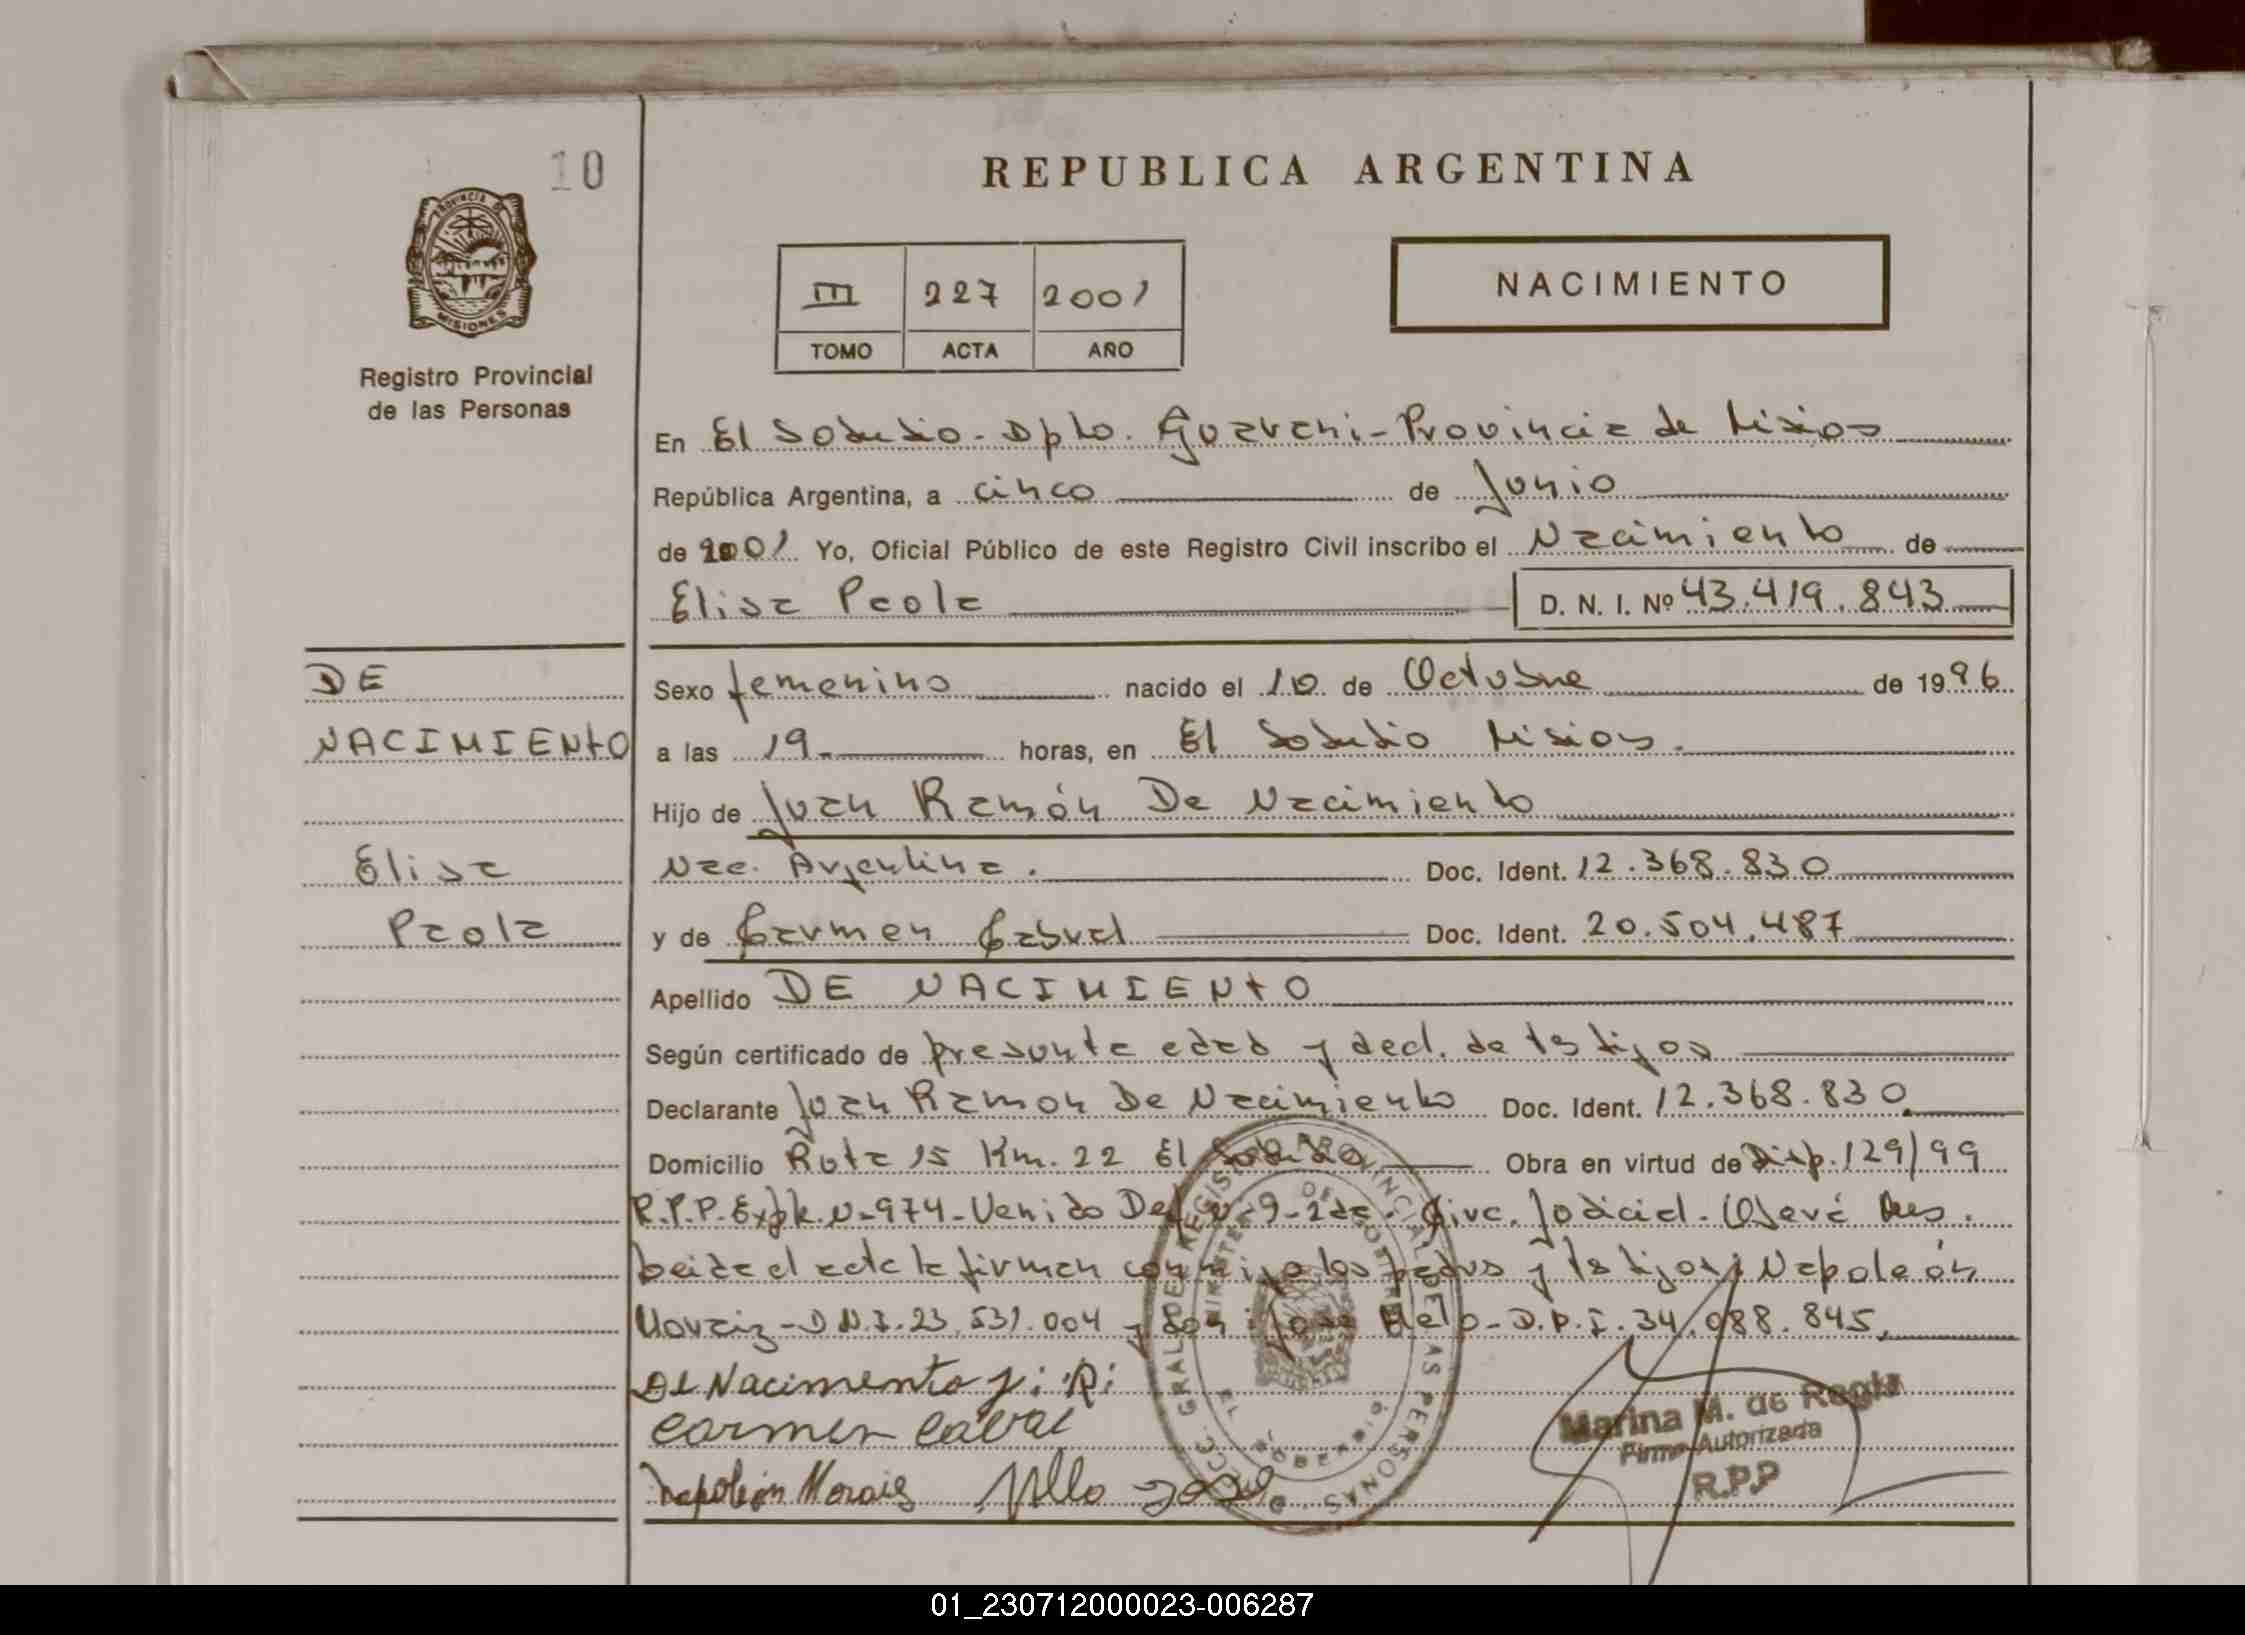 10
REPUBLICA ARGENTINA
PROVINCIA DE
MISIONES
Registro Provincial
de las Personas
III 227 2001
TOMO ACTA AÑO
NACIMIENTO
En El Soberbio - Dpto. Guarani - Provincia de Misiones
República Argentina, a cinco de Junio
de 2001 Yo, Oficial Público de este Registro Civil inscribo el Nacimiento de
Elisa Paola D. N. I. Nº 43.419.843
DE
NACIMIENTO
Elisa
Paola
Sexo femenino nacido el 10 de Octubre de 1996
a las 19 horas, en El Soberbio Misiones.
Hijo de Juan Ramón De Nacimiento
Nac. Argentina. Doc. Ident. 12.368.830
y de Carmen Cabral Doc. Ident. 20.504.487
Apellido DE NACIMIENTO
Según certificado de presunta edad y decl. de testigos
Declarante Juan Ramon De Nacimiento Doc. Ident. 12.368.830
Domicilio Ruta 15 Km. 22 El Soberbio Obra en virtud de Disp. 129/99
R.P.P. Expte. N-974-Venido Def. N-9-2da. Circ. Judicial. Oberá Mes.
Leida el acta la firman conmigo los padres y testigos, Napoleón
Moraiz - D.N.I. 23.531.004 y José Melo - D.N.I. 34.088.845.
De Nacimento J. R.
Carmen Cabral
Napoleon Morais Mello José
Marina M. de Regis
Firma Autorizada
R.P.P
01_230712000023-006287